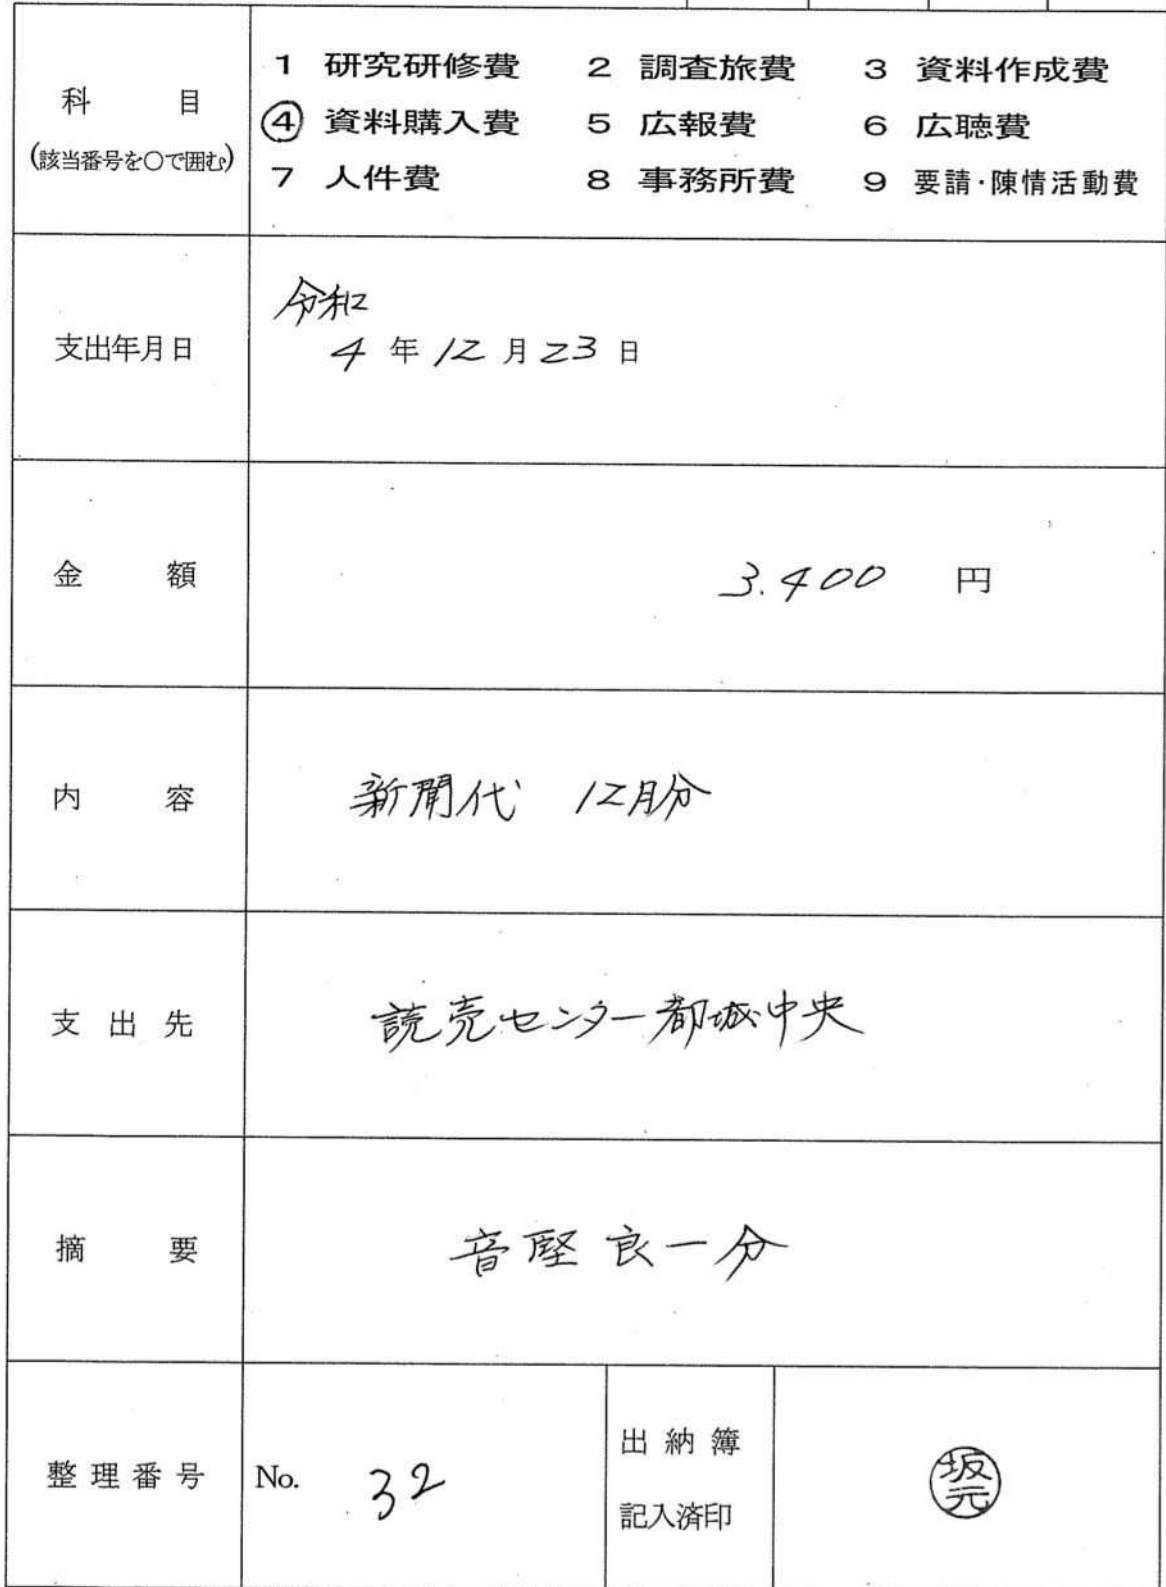 科 目
(該当番号を○で囲む)
1 研究研修費 2 調査旅費 3 資料作成費
④ 資料購入費 5 広報費 6 広聴費
7 人件費 8 事務所費 9 要請・陳情活動費
支出年月日
令和
4 年 12 月 23 日
金 額
3.400 円
内 容
新聞代 12月分
支 出 先
読売センター都城中央
摘 要
音堅良一分
整 理 番 号
No. 32
出 納 簿
記入済印
坂元